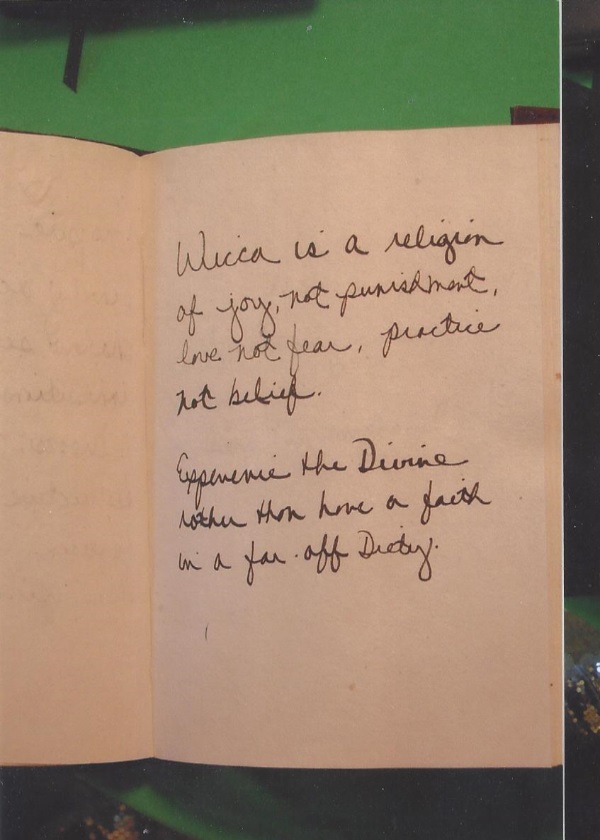 Wicca is a religion
of joy, not punishment,
love not fear, practice
not belief.
Experience the Divine
rather than have a faith
in a far-off Diety.